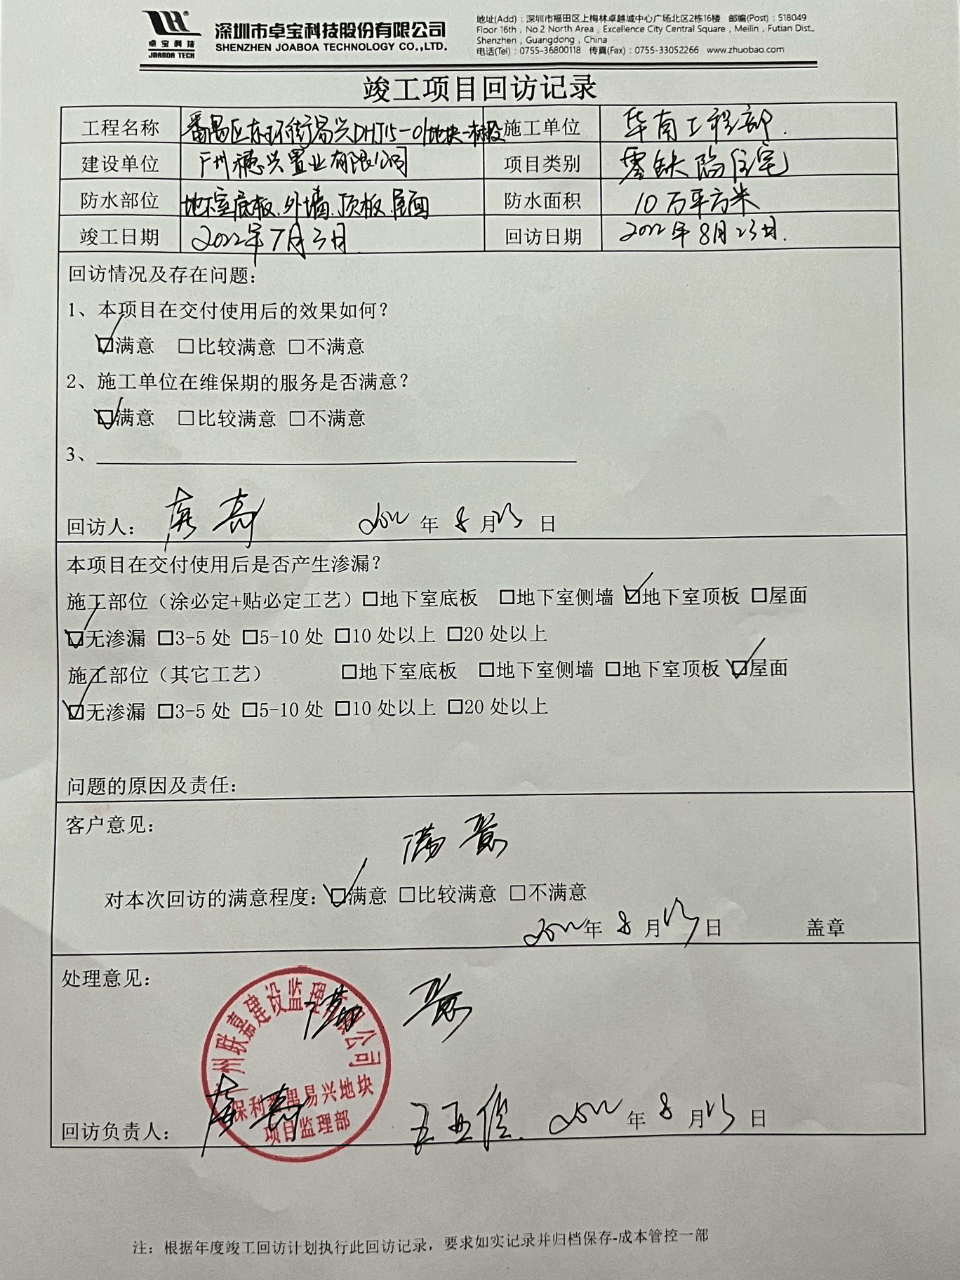 卓宝科技
JOABOA TECH
深圳市卓宝科技股份有限公司
SHENZHEN JOABOA TECHNOLOGY CO.,LTD.
地址(Add)：深圳市福田区上梅林卓越城中心广场北区2栋16楼 邮编(Post)：518049
Floor 16th , No 2 North Area , Excellence City Central Square , Meilin , Futian Dist.,
Shenzhen , Guangdong , China
电话(Tel)：0755-36800118 传真(Fax)：0755-33052266 www.zhuobao.com
竣工项目回访记录
工程名称 番禺区东环街易兴DHT15-01地块一标段 施工单位 华南工程部.
建设单位 广州穗兴置业有限公司 项目类别 零缺陷住宅
防水部位 地下室底板.外墙.顶板.屋面 防水面积 10万平方米
竣工日期 2022年7月3日. 回访日期 2022年8月23日.
回访情况及存在问题：
1、本项目在交付使用后的效果如何？
☑满意 □比较满意 □不满意
2、施工单位在维保期的服务是否满意？
☑满意 □比较满意 □不满意
3、
回访人： 2022 年 8 月 23 日
本项目在交付使用后是否产生渗漏？
施工部位（涂必定+贴必定工艺）□地下室底板 □地下室侧墙 ☑地下室顶板 □屋面
☑无渗漏 □3-5 处 □5-10 处 □10 处以上 □20 处以上
施工部位（其它工艺） □地下室底板 □地下室侧墙 □地下室顶板 ☑屋面
☑无渗漏 □3-5 处 □5-10 处 □10 处以上 □20 处以上
问题的原因及责任：
客户意见：
满意
对本次回访的满意程度：☑满意 □比较满意 □不满意
2022 年 8 月 23 日 盖章
处理意见：
满意
广州联嘉建设监理有限公司
保利番禺易兴地块
项目监理部
回访负责人： 2022 年 8 月 23 日
注：根据年度竣工回访计划执行此回访记录，要求如实记录并归档保存-成本管控一部